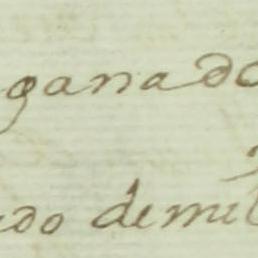 ganado
do demil